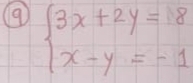 ⑨ { 3x + 2y = 8
x - y = -1